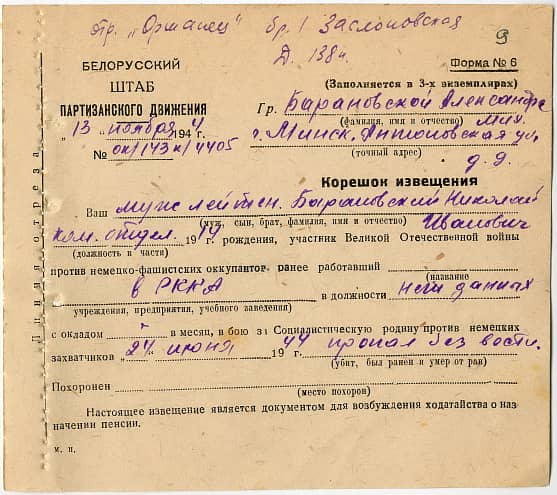 отр. „Оршанец" бр. 1 Заслоновская
Д. 138н. 9
БЕЛОРУССКИЙ
ШТАБ
ПАРТИЗАНСКОГО ДВИЖЕНИЯ
„13" ноября 1944 г.
№ ок/143н/4405
Форма № 6
(Заполняется в 3-х экземплярах)
Гр. Барановской Александре
(фамилия, имя и отчество) Мих.
г. Минск, Антоновская ул.
(точный адрес)
д. 9.
Линия отреза
Корешок извещения
Ваш муж лейтен. Барановский Николай
(муж, сын, брат, фамилия, имя и отчество) Иванович
ком. отдел. 19 г. рождения, участник Великой Отечественной войны
(должность в части)
против немецко-фашистских оккупантов, ранее работавший
(название
в РККА в должности нет данных
учреждения, предприятия, учебного заведения)
с окладом - в месяц, в бою за Социалистическую родину против немецких
захватчиков „24" июня 1944 пропал без вести.
(убит, был ранен и умер от ран)
Похоронен
(место похорон)
Настоящее извещение является документом для возбуждения ходатайства о наз-
начении пенсии.
м. п.